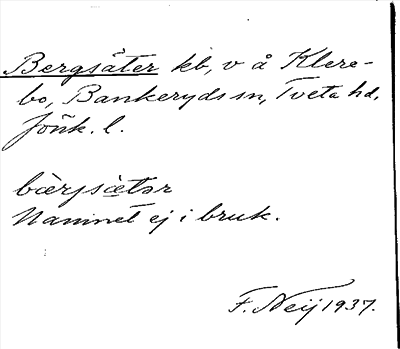 Bergsäter kb, v å Klere-
bo, Bankeryds sn, Tveta hd,
Jönk. l.
bæ̀rjsæ̀tər
Namnet ej i bruk.
F. Neij 1937.